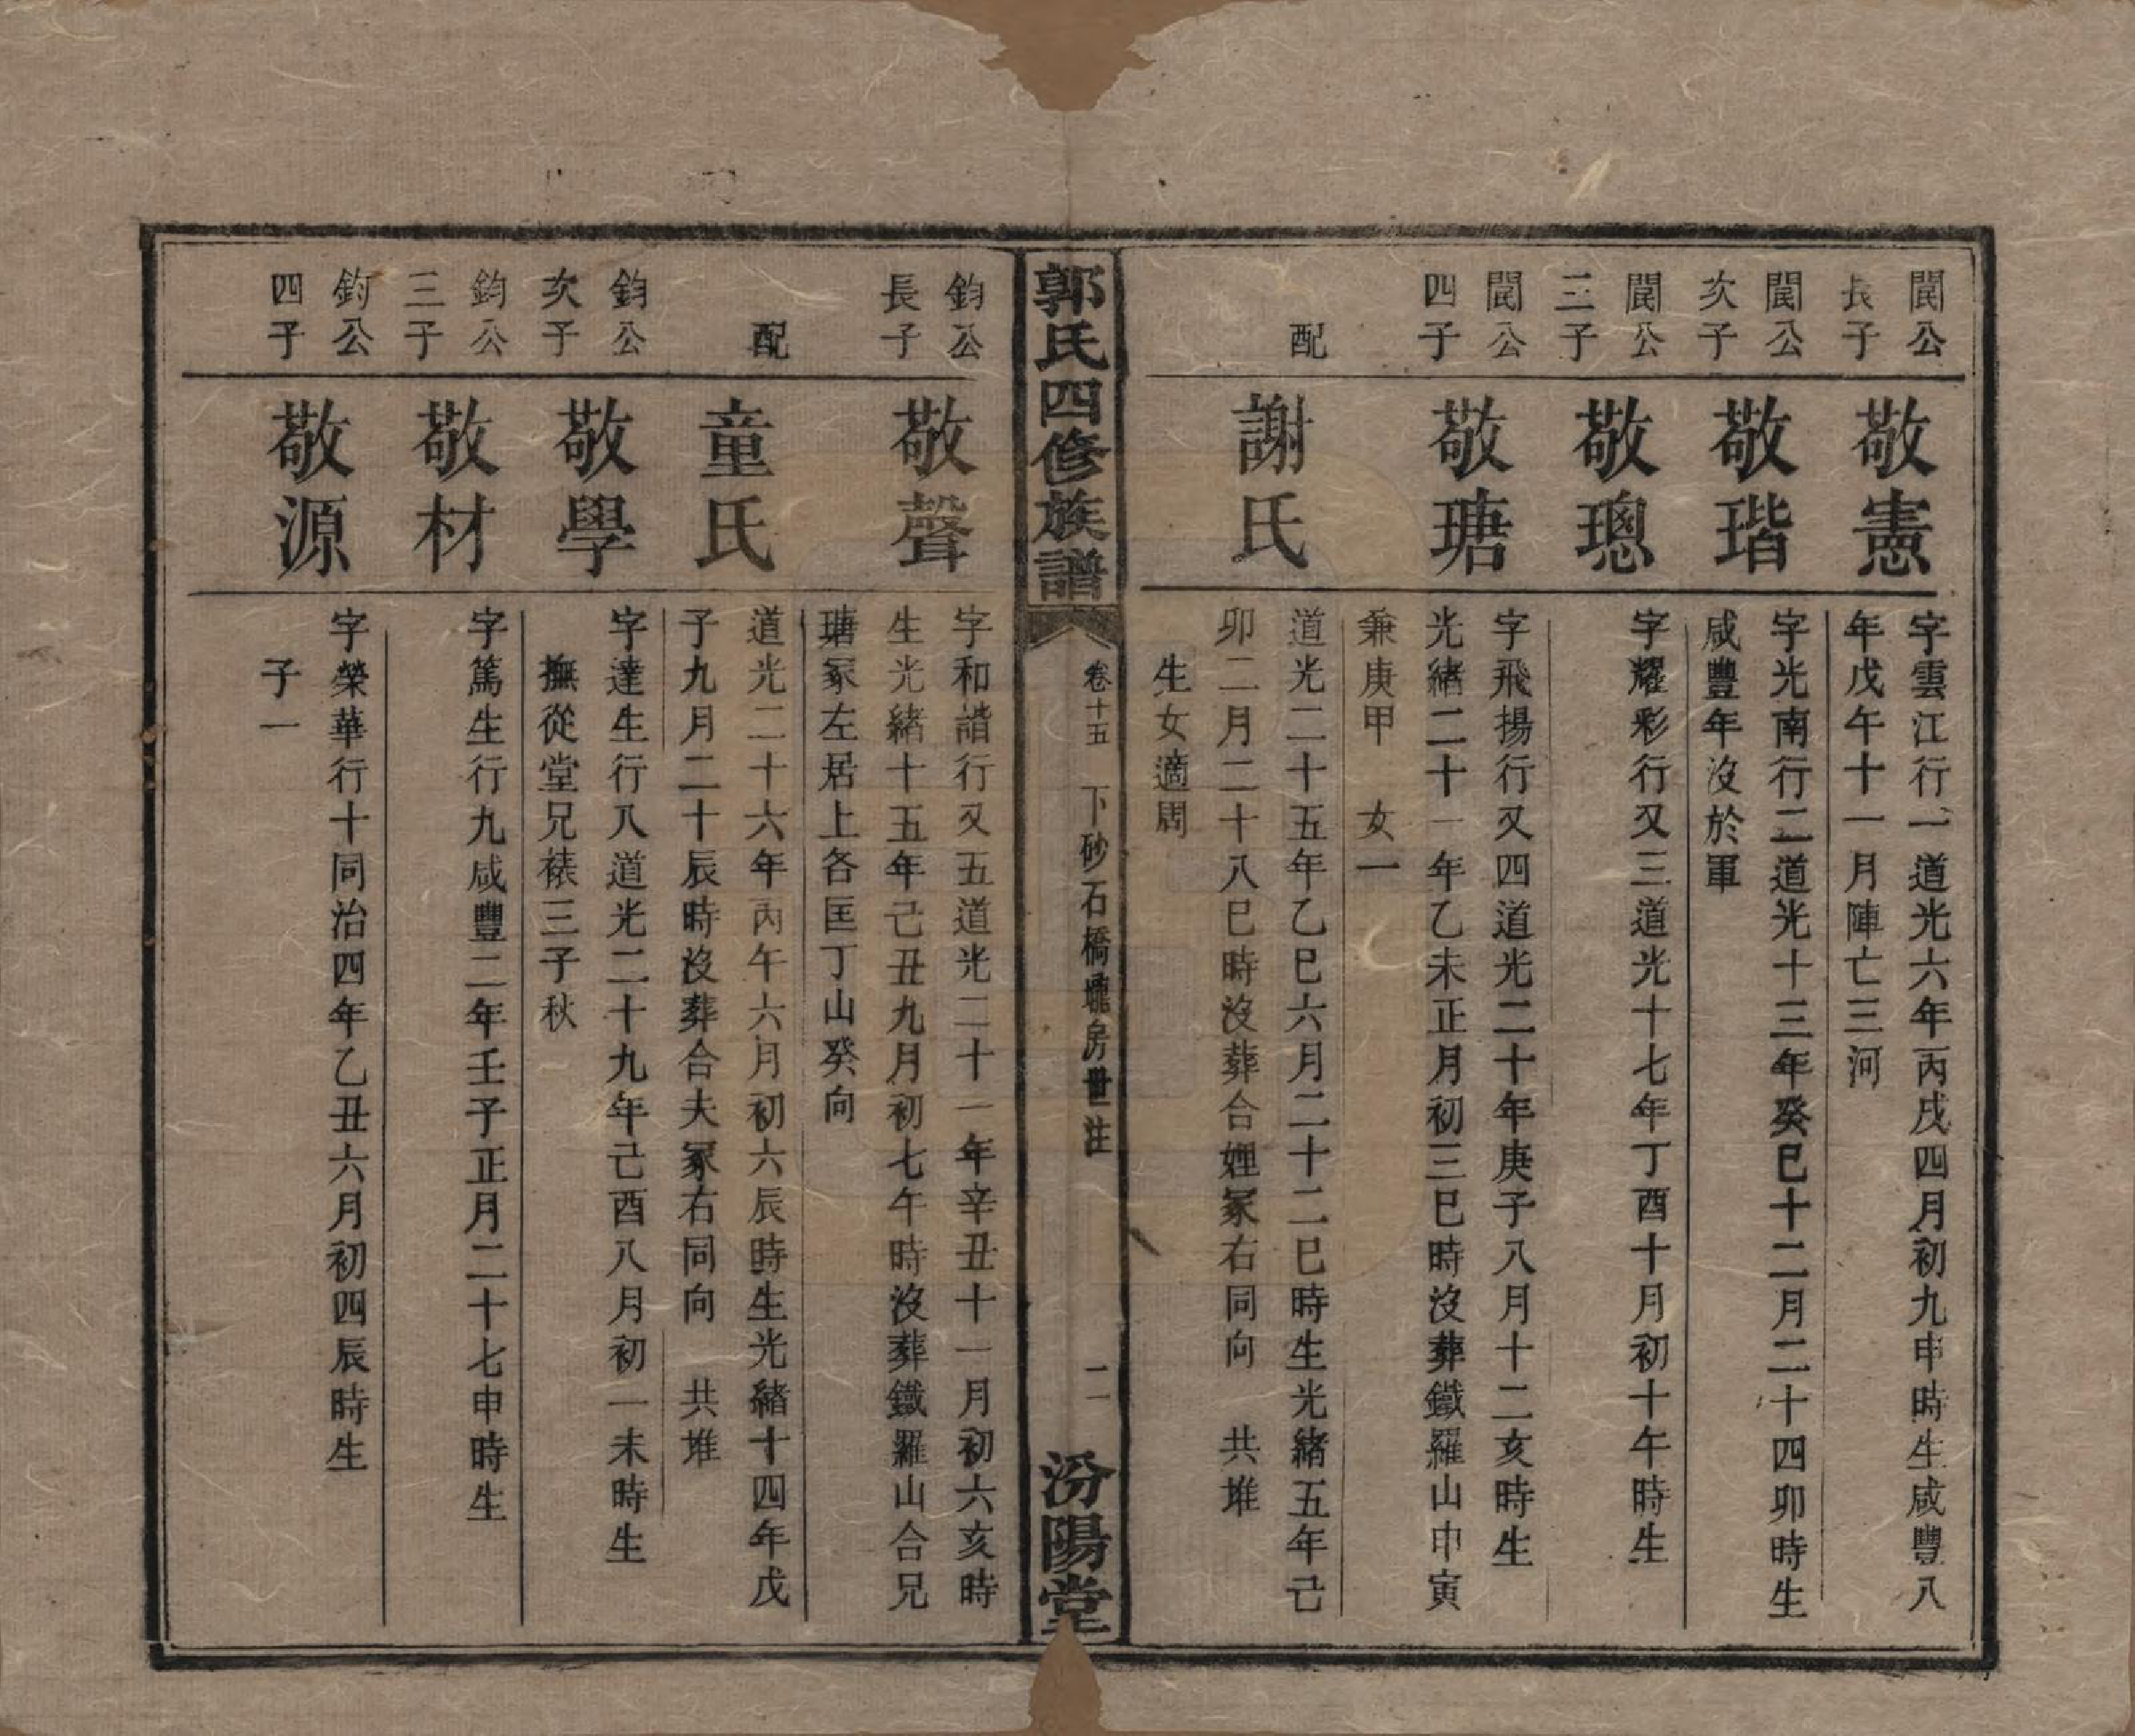 閬公
長子
敬憲
字雲江行一道光六年丙戌四月初九申時生咸豐八
年戊午十一月陣亡三河
閬公
次子
敬瑎
字光南行二道光十三年癸巳十二月二十四卯時生
咸豐年沒於軍
閬公
三子
敬璁
字耀彩行又三道光十七年丁酉十月初十午時生
閬公
四子
敬瑭
字飛揚行又四道光二十年庚子八月十二亥時生
光緒二十一年乙未正月初三巳時沒葬鐵羅山申寅
兼庚甲 女一
配
謝氏
道光二十五年乙巳六月二十二巳時生光緒五年己
卯二月二十八巳時沒葬合娌冢右同向 共堆
生女適周
郭氏四修族譜
卷十五 下砂石橋房世注
二一
汾陽堂
鈞公
長子
敬聲
字和諧行又五道光二十一年辛丑十一月初六亥時
生光緒十五年己丑九月初七午時沒葬鐵羅山合兄
瑭冢左居上各匡丁山癸向
配
童氏
道光二十六年丙午六月初六辰時生光緒十四年戊
子九月二十辰時沒葬合夫冢右同向 共堆
鈞公
次子
敬學
字達生行八道光二十九年己酉八月初一未時生
撫從堂兄裱三子秋
鈞公
三子
敬材
字篤生行九咸豐二年壬子正月二十七申時生
鈞公
四子
敬源
字榮華行十同治四年乙丑六月初四辰時生
子一